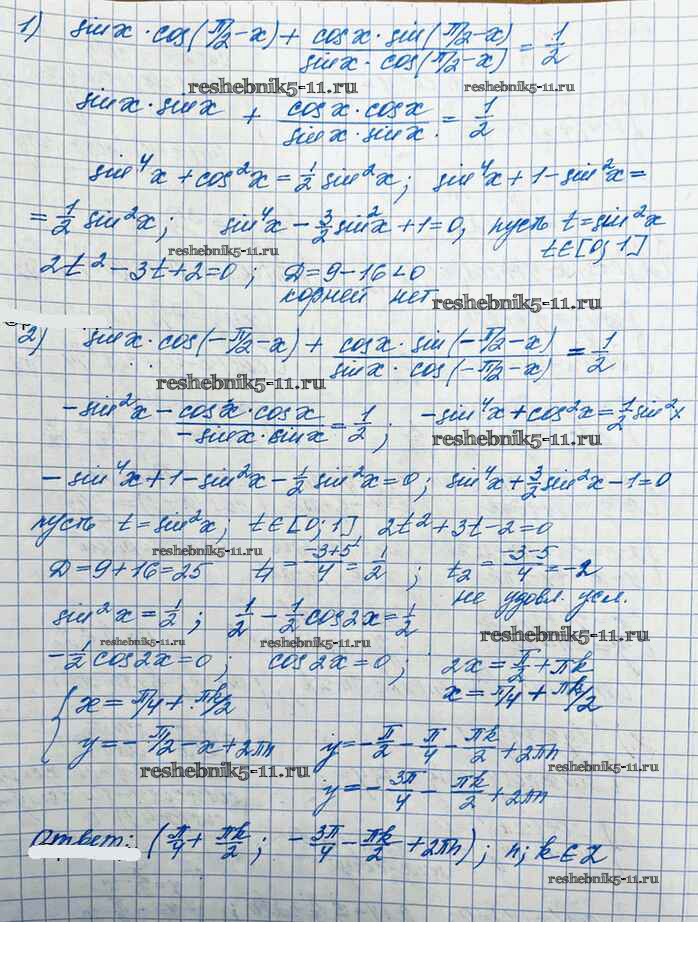 1) sin x · cos(π/2 - x) + cos x · sin(π/2 - x) / sin x · cos(π/2 - x) = 1/2
reshebnik5-11.ru reshebnik5-11.ru
sin x · sin x + cos x · cos x / sin x · sin x = 1/2
sin⁴x + cos²x = 1/2 sin²x; sin⁴x + 1 - sin²x =
= 1/2 sin²x; sin⁴x - 3/2 sin²x + 1 = 0, пусть t = sin²x
reshebnik5-11.ru t∈[0; 1]
2t² - 3t + 2 = 0; D = 9 - 16 < 0
корней нет reshebnik5-11.ru
2) sin x · cos(-π/2 - x) + cos x · sin(-π/2 - x) / sin x · cos(-π/2 - x) = 1/2
reshebnik5-11.ru
-sin²x - cos x · cos x / -sin x · sin x = 1/2; -sin⁴x + cos²x = 1/2 sin²x
reshebnik5-11.ru
-sin⁴x + 1 - sin²x - 1/2 sin²x = 0; sin⁴x + 3/2 sin²x - 1 = 0
пусть t = sin²x; t∈[0; 1], 2t² + 3t - 2 = 0
reshebnik5-11.ru
D = 9 + 16 = 25 t₁ = -3+5/4 = 1/2; t₂ = -3-5/4 = -2
не удовл. усл.
sin²x = 1/2; 1/2 - 1/2 cos 2x = 1/2
reshebnik5-11.ru reshebnik5-11.ru reshebnik5-11.ru
-1/2 cos 2x = 0; cos 2x = 0; 2x = π/2 + πk
x = π/4 + πk/2
{ x = π/4 + πk/2
y = -π/2 - x + 2πn y = -π/2 - π/4 - πk/2 + 2πn
reshebnik5-11.ru
y = -3π/4 - πk/2 + 2πn
reshebnik5-11.ru
Ответ: (π/4 + πk/2; -3π/4 - πk/2 + 2πn); n; k ∈ Z
reshebnik5-11.ru